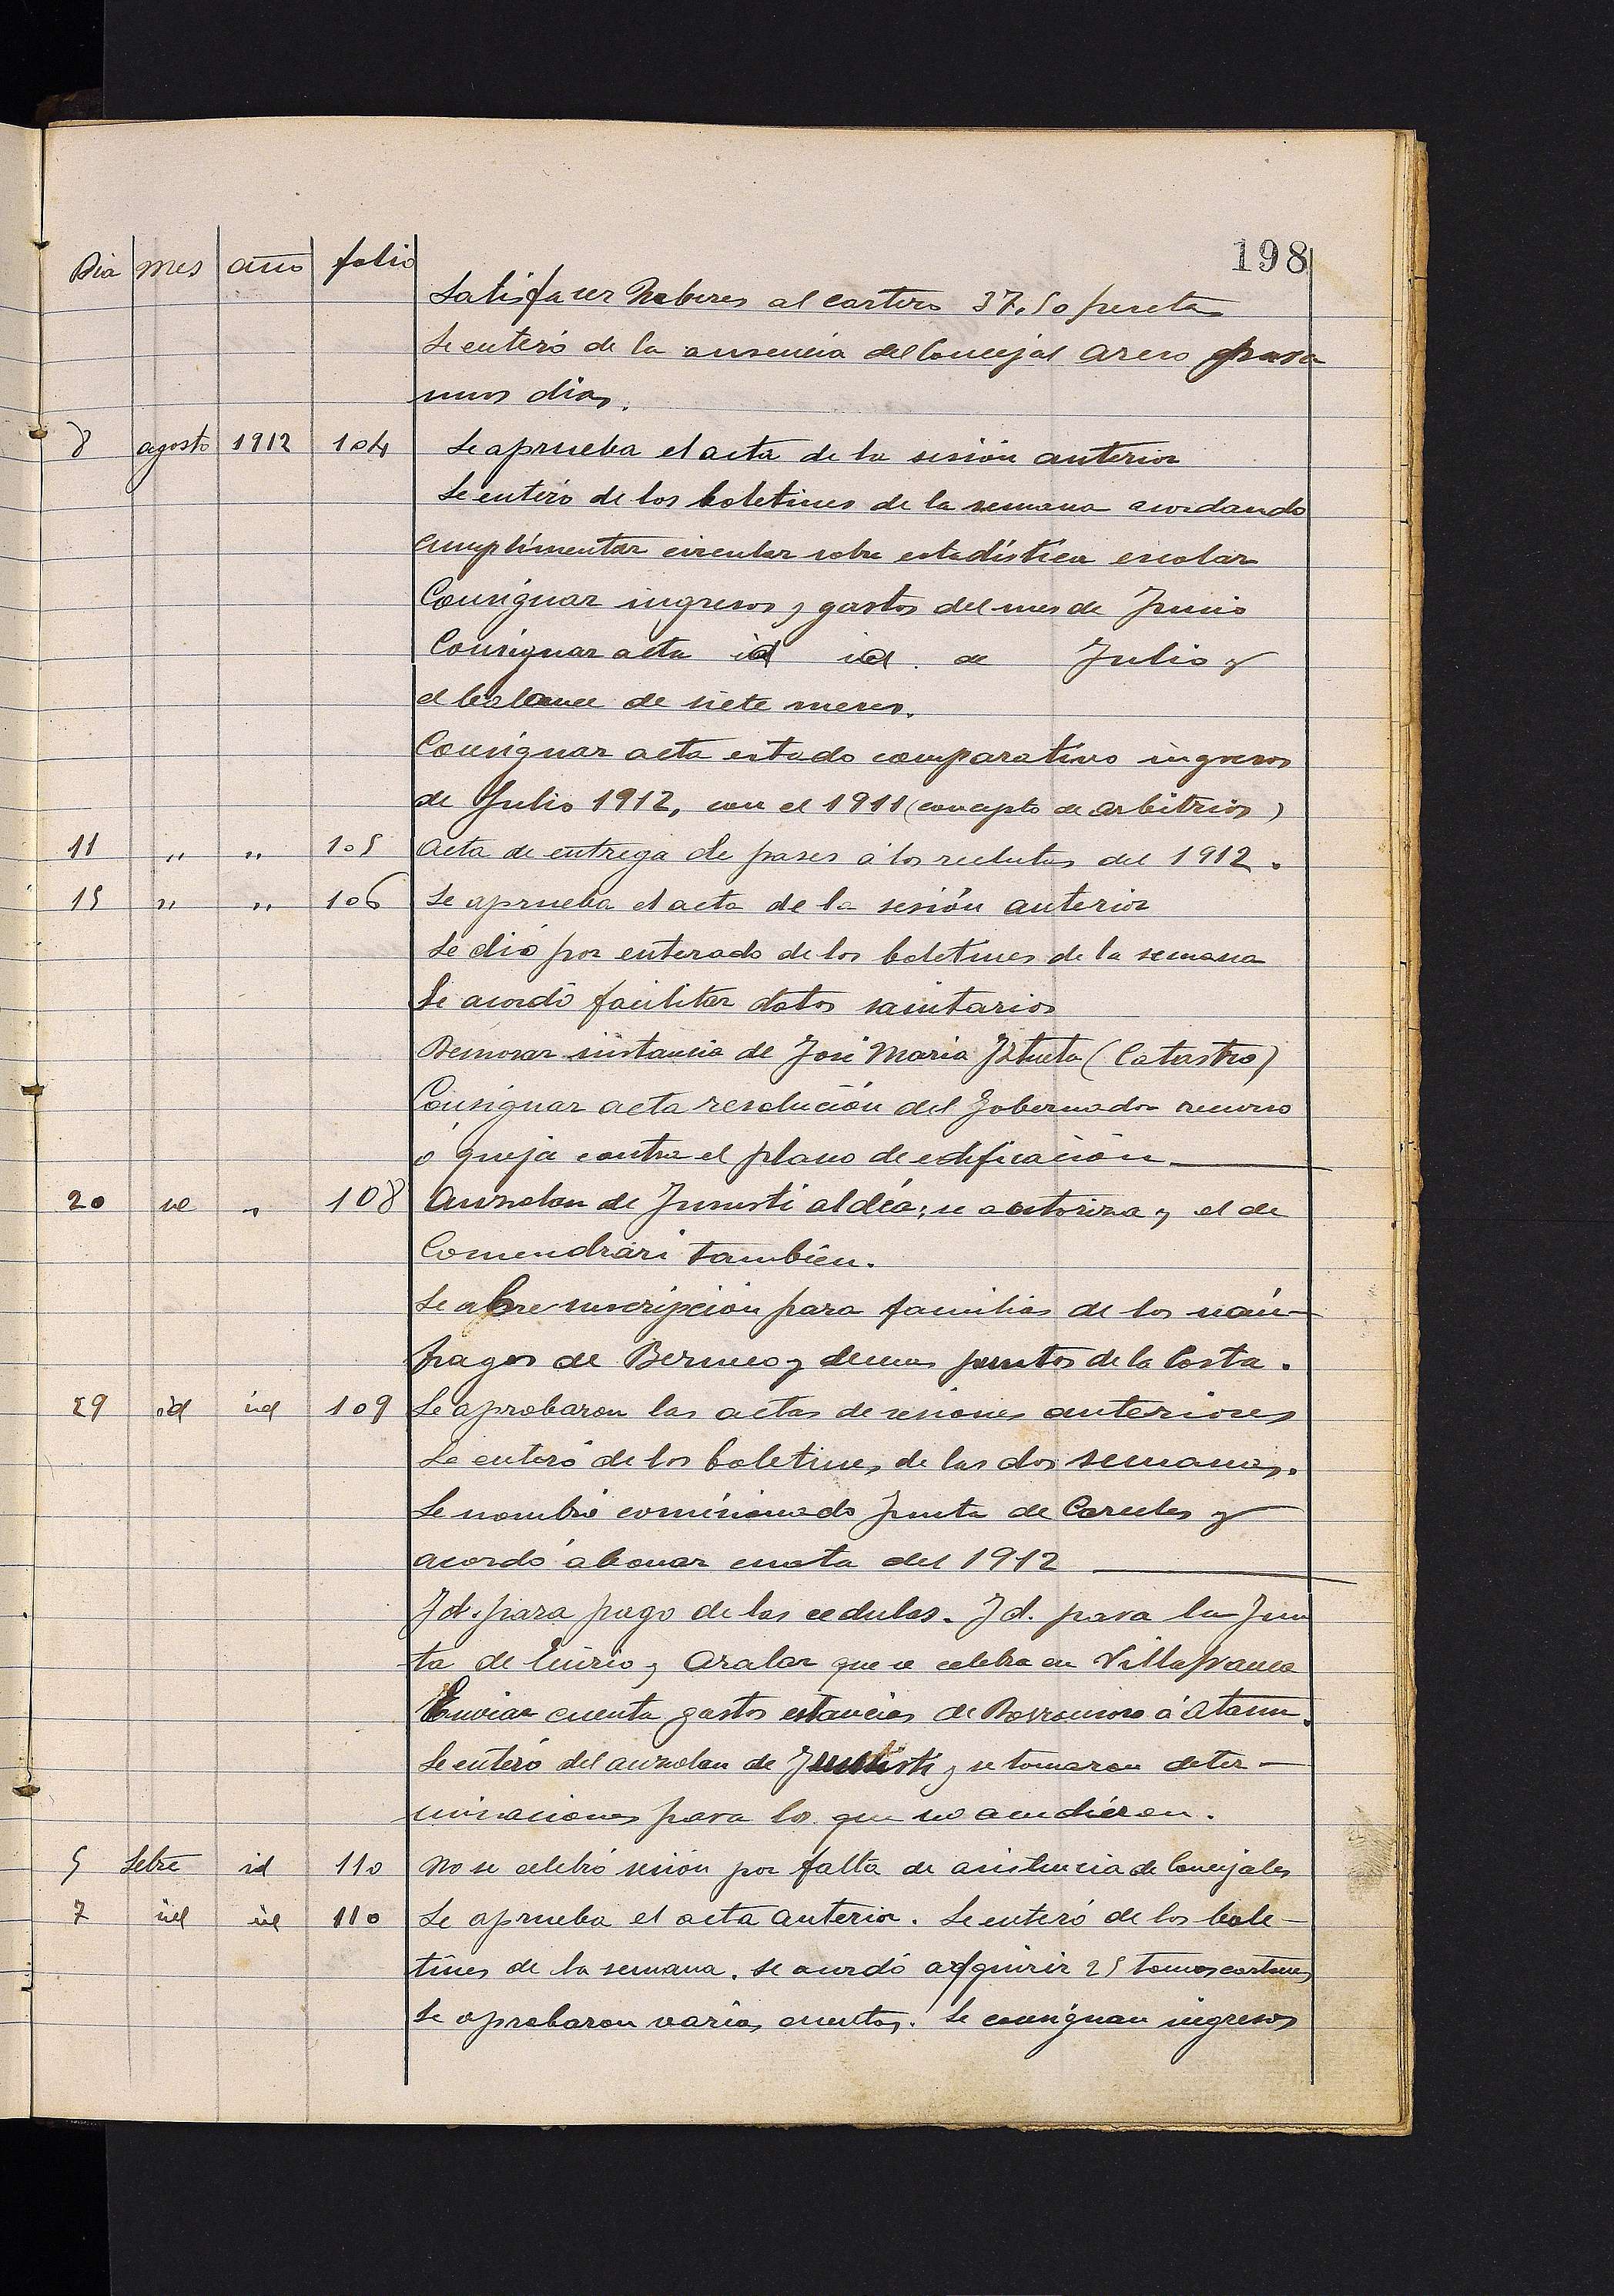 198
Dia mes año folio
Satisfacer Haberes al cartero 37.50 pesetas
Se enteró de la ausencia del Concejal Areso para
unos dias.
8 agosto 1912 104 Se aprueba el acta de la sesión anterior
Se enteró de los boletines de la semana acordando
cumplimentar circular sobre estadística escolar
Consignar ingresos y gastos del mes de Junio
Consignar acta id id. de Julio y
el balance de siete meses.
Consignar acta estado comparativo ingresos
de Julio 1912, con el 1911 (concepto de arbitrios)
11 " " 105 Acta de entrega de pases á los reclutas del 1912.
15 " " 106 Se aprueba el acta de la sesión anterior
Se dió por enterado de los boletines de la semana
Se acordó facilitar datos sanitarios
instancia de José Maria Iztueta (Catastro)
Consignar acta resolución del Gobernador recurso
ó queja contra el plano de edificación
20 id " 108 Auzolan de aldéa; se autoriza y el de
también.
Se abre suscripción para familias de los náu-
fragos de Bermeo y demas puntos de la Costa.
29 id id 109 Se aprobaron las actas de sesiones anteriores
Se enteró de los boletines de las dos semanas.
Se nombró comisionado Junta de Carceles y
acordó abonar cuota del 1912
Id. para pago de las cedulas. Id. para la Jun
ta de Enirio y Aralar que se celebra en Villafranca
Enviar cuenta gastos estancias de á Ataun.
Se enteró del auzolan de y se tomaron deter-
minaciones para los que no acudieron.
5 Sebre id 110 No se celebró sesión por falta de asistencia de Concejales
7 id id 110 Se aprueba el acta anterior. Se enteró de los bole-
tines de la semana. Se acordó adquirir 25 tomos
Se aprobaron varias cuentas. Se consignan ingresos